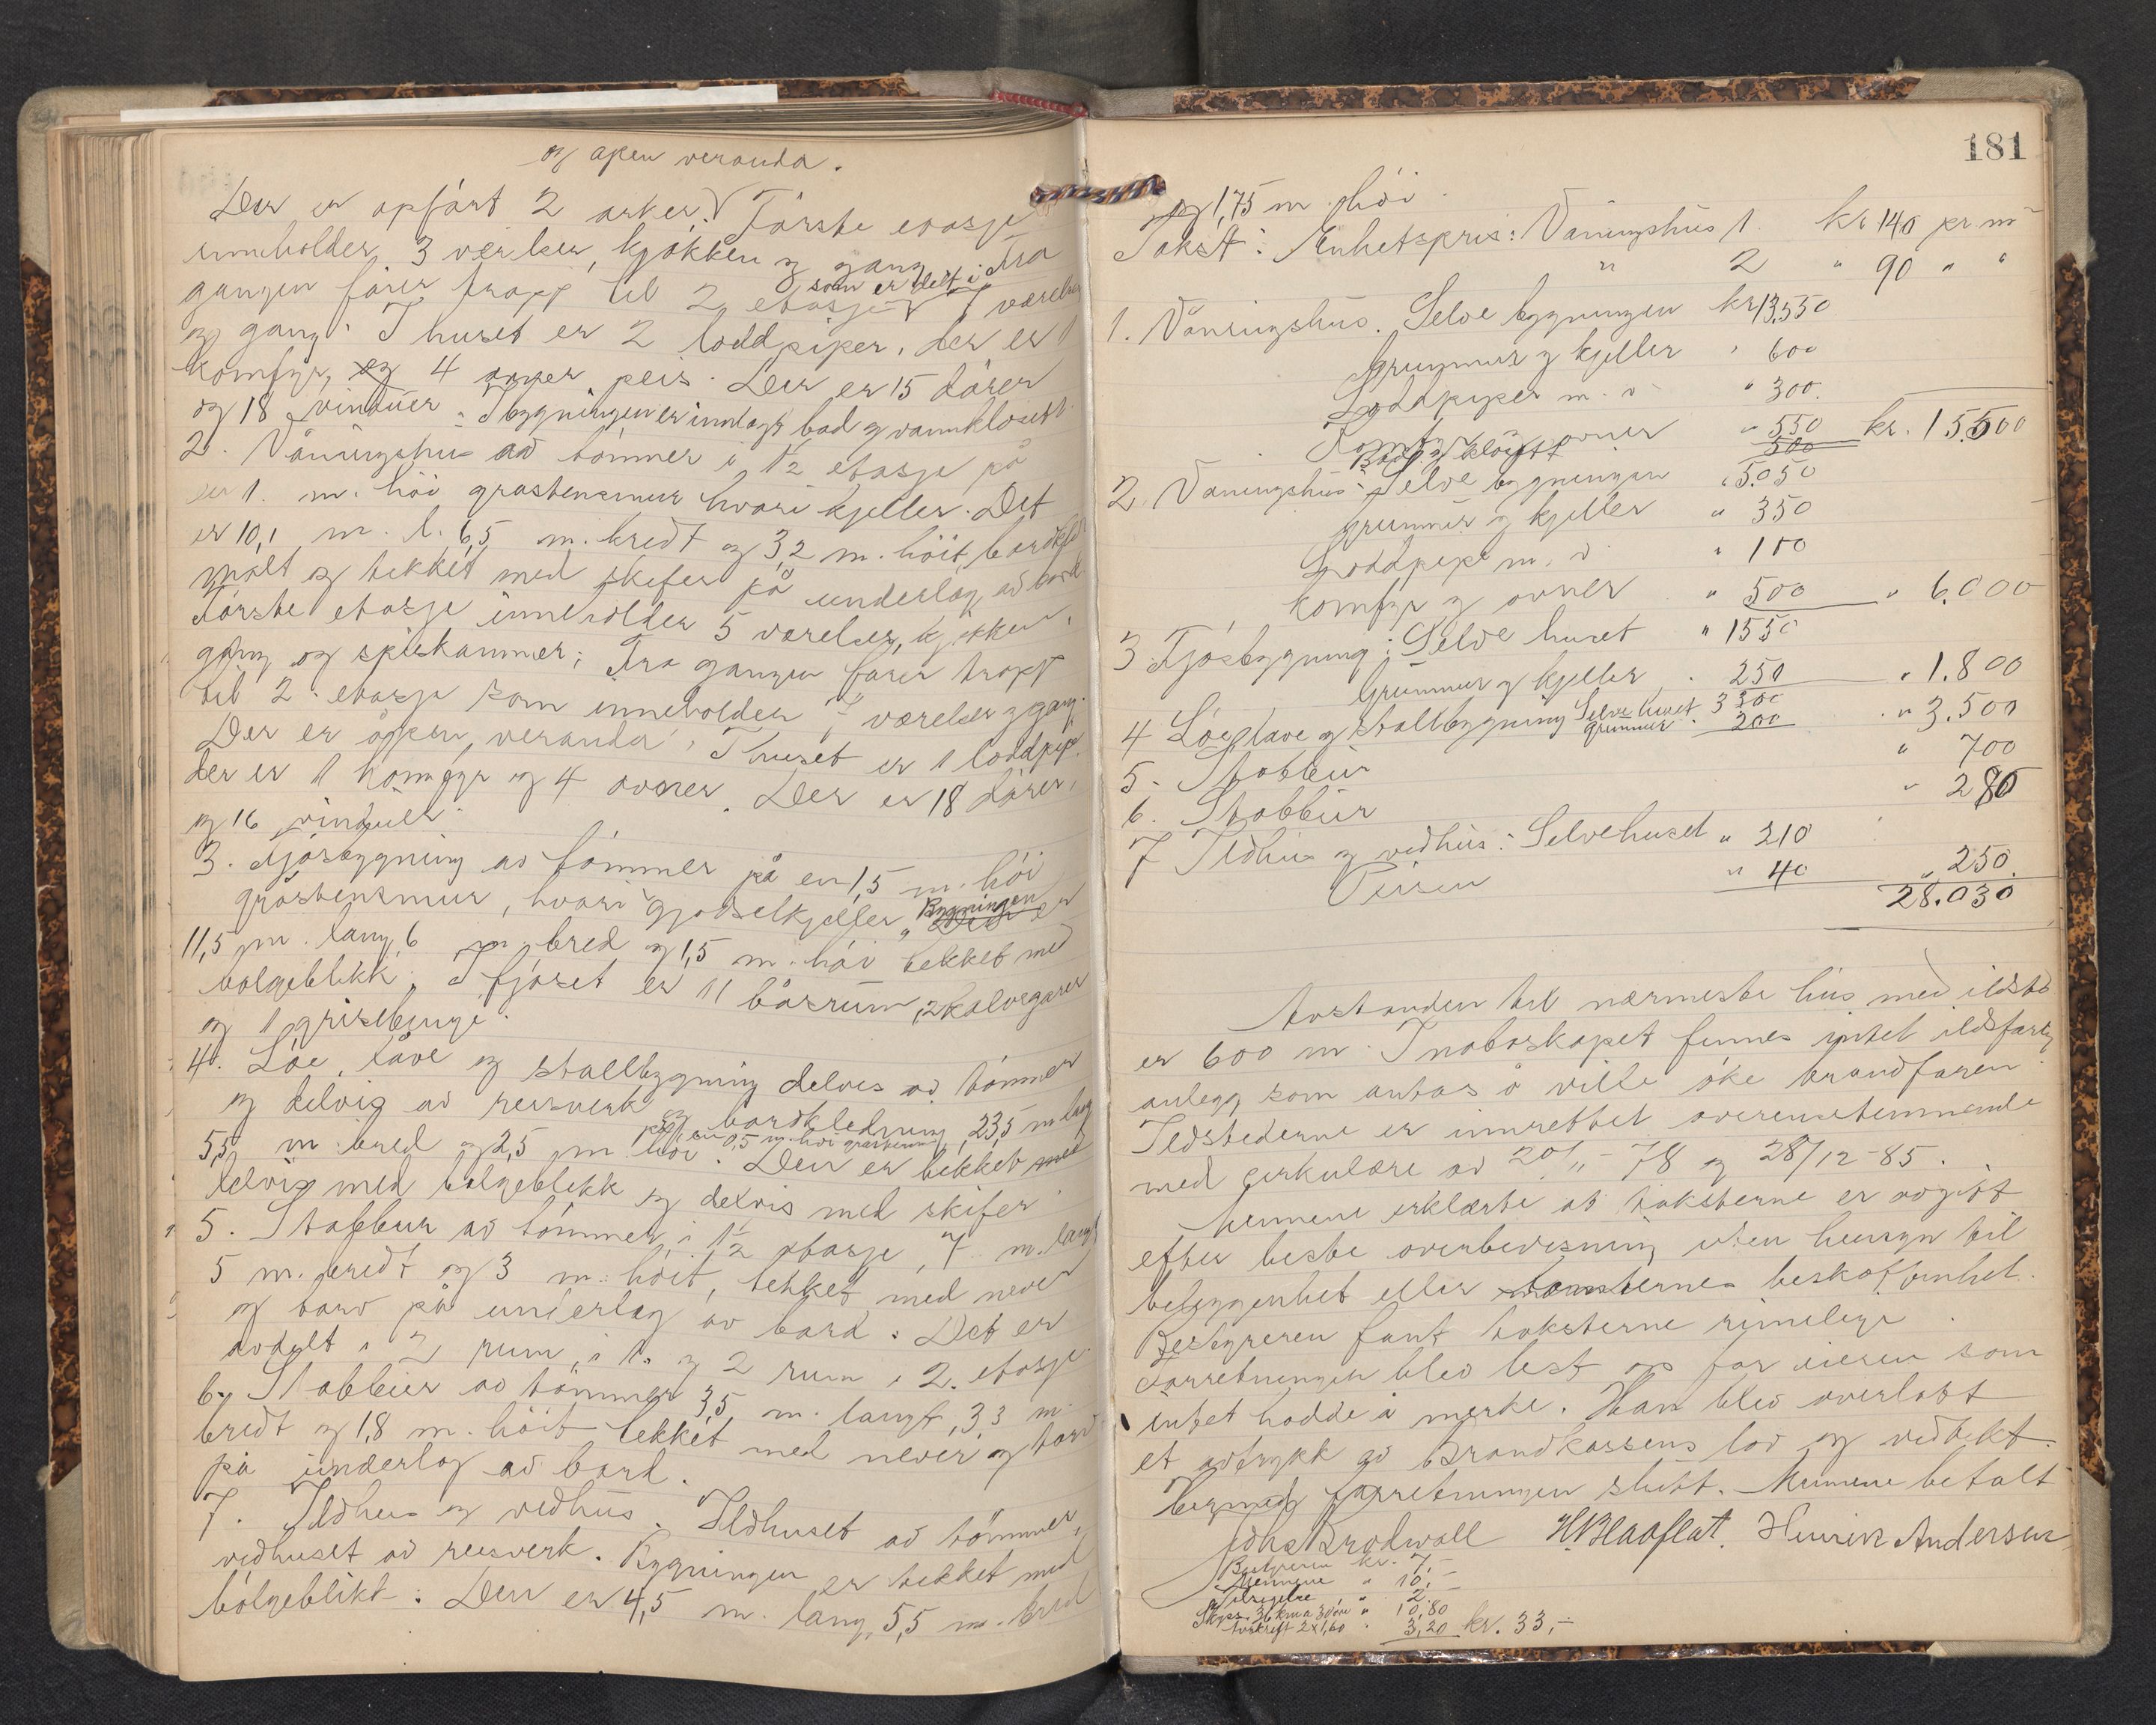 og åpen veranda.
Der er opført 2 arker. Første etasje
inneholder 3 værelser, kjøkken og gang. Fra
gangen fører trapp til 2 etasje som er delt i 7 værelser
og gang. I huset er 2 loddpiper. Der er 1
komfyr, og 4 ovner, peis. Der er 15 dører
og 18 vinduer. I bygningen er innlagt bad og vannklosett.
2. Våningshus av tømmer i 1½ etasje på
en 1. m. høi gråstensmur hvori kjeller. Det
er 10,1 m. l. 6,5 m. bredt og 3,2 m. høit, bordkledt
malt og tekket med skifer på underlag av bord.
Første etasje inneholder 5 værelser, kjøkken,
gang og spiskammer; Fra gangen fører trapp
til 2. etasje som inneholder værelser og gang.
Der er åpen veranda. I huset er 1 loddpipe.
der er 1 komfyr og 4 ovner. Der er 18 dører,
og 16 vinduer.
3. Fjøsbygning av tømmer på en 1,5 m. høi
gråstensmur, hvori gjødselkjeller. Bygningen er
11,5 m. lang, 6 m. bred og 1,5 m. høi tekket med
bølgeblikk. I fjøset er 11 båsrum, 2 kalvegarer
og 1 grisebinge.
4. Løe, låve og stallbygning delvis av tømmer
og delvis av reisverk og bordkledning, 23,5 m lang
5,5 m. bred og 2,5 m høi på en 0,5 m. høi gråstensmur. Den er tekket med
delvis med bølgeblikk og delvis med skifer.
5. Stabbur av tømmer i 1½ etasje, 7 m. langt
5 m. bredt og 3 m. høit, tekket med never
og torv på underlag av bord. Det er
avdelt i 2 rum i 1. og 2 rum i 2. etasje
6. Stabbur av tømmer 3,5 m. langt, 3,3 m.
bredt og 1,8 m. høit tekket med never og torv
på underlag av bord.
7. Ildhus og vedhus. Ildhuset av tømmer,
vedhuset av reisverk. Bygningen er tekket med
bølgeblikk. Den er 4,5 m. lang, 5,5 m. bred
181
og 1,75 m. høi.
Takst: Enhetspris: Våningshus 1. kr 140 pr. m²
" 2 " 90 " "
1. Våningshus. Selve bygningen kr 13,550
Grunnmur og kjeller " 600
Loddpiper m. v " 300.
Komfyr og ovner " 550 kr. 15500
Bad og klosett 500
2. Våningshus: Selve bygningen " 5.050
Grunnmur og kjeller " 350
Loddpipe m. v. " 100
Komfyr og ovner " 500 " 6.000
3 Fjøsbygning: Selve huset " 1550
Grunnmur og kjeller " 250 " 1.800
4 Løe, låve og stallbygning Selve huset 3300
grunnmur " 200 " 3.500
5. Stabbur " 700
6. Stabbur " 280
7 Ildhus og vedhus: Selve huset " 210
Peisen " 40 " 250.
28.030
Avstanden til nærmeste hus med ildsted
er 600 m. I naboskapet finnes intet ildsfarlig
anlegg som antas å ville øke brandfaren.
Ildstederne er innrettet overensstemmende
med cirkulære av 20/11-78 og 28/12-85.
Mennene erklærte at taksterne er avgitt
efter beste overbevisning uten hensyn til
beliggenhet eller tomternes beskaffenhet.
Bestyreren fant taksterne rimelige.
Forretningen blev lest op for eieren som
intet hadde å merke. Han blev overlatt
et avtrykk av Brandkassens lov og vedtekt.
Hermed forretningen slutt. Mennene betalt
Johs Brodwall H. B. Haaflat. Henrik Andersen
Bestyreren kr. 7,-
Mennene " 10,-
Utsigelse " 2,-
Skyss 36 km a 30 øre " 10,80
Avskrift 2x1,60 " 3,20 kr. 33,-